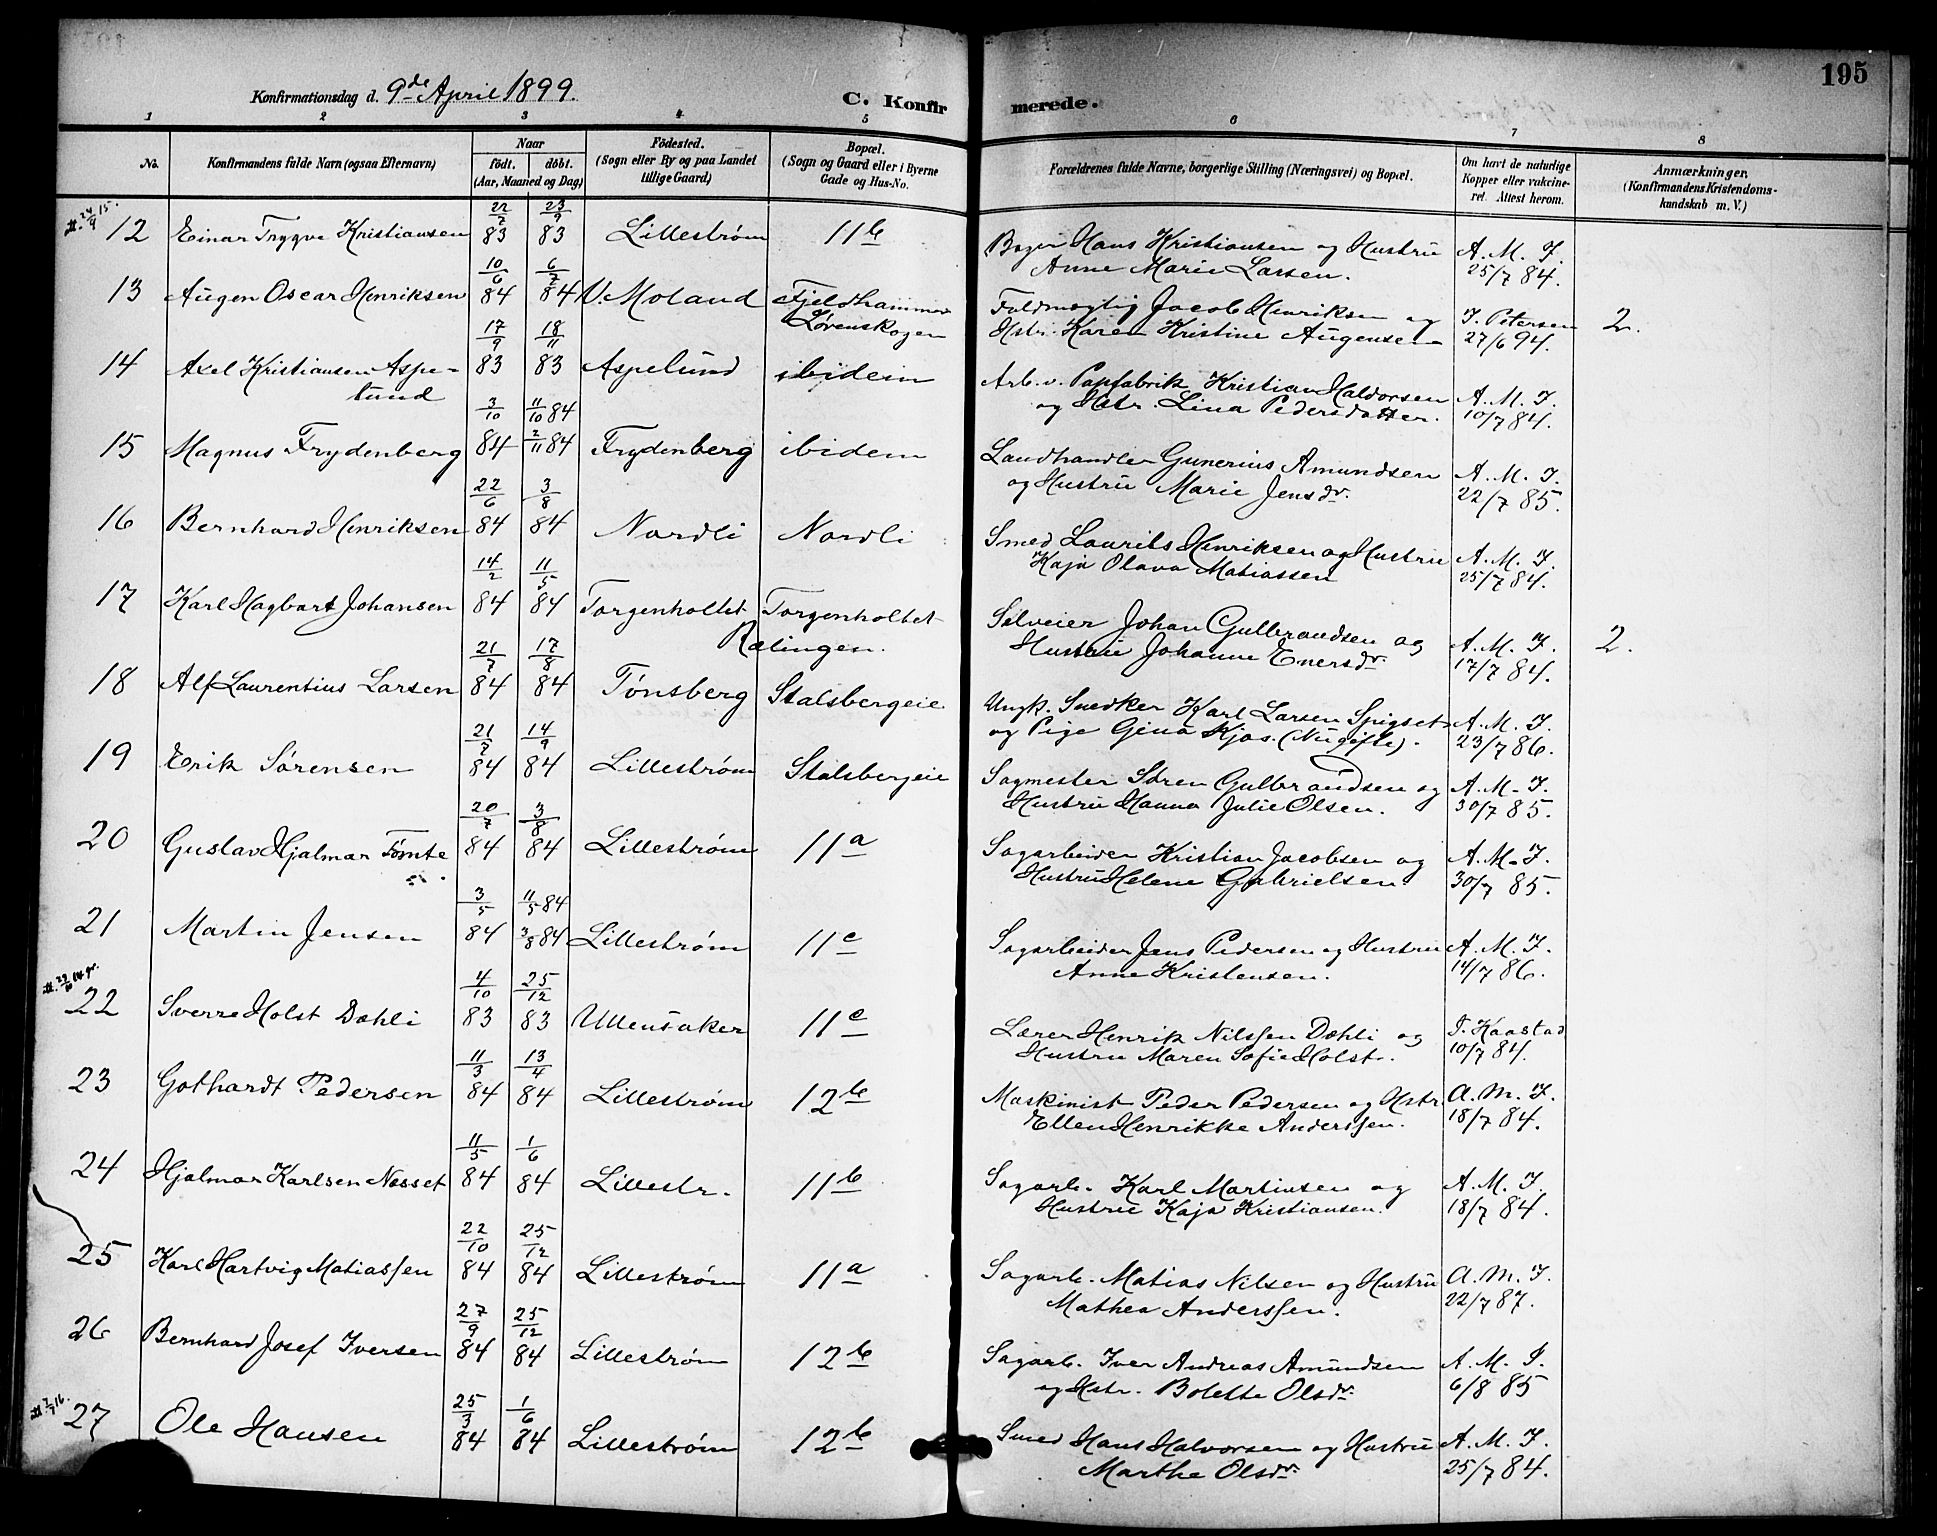 195
Konfirmationsdag d. 9de April 1899.
C. Konfirmerede.
1 2 3 4 5 6 7 8
No. | Konfirmandens fulde Navn (ogsaa Efternavn) | Naar født. døbt. (Aar, Maaned og Dag) | Fødested. (Sogn eller By og paa Landet tillige Gaard) | Bopæl. (Sogn og Gaard eller i Byerne Gade og Hus-No. | Forældrenes fulde Navne, borgerlige Stilling (Næringsvei) og Bopæl. | Om havt de naturlige Kopper eller vakcineret. Attest herom. | Anmærkninger. (Konfirmandens Kristendomskundskab m. V.)
12 Einar Trygve Kristiansen 22/7 83 23/9 83 Lillestrøm 11b Bager Hans Kristiansen og Hustru A. M. I.
Anne Marie Larsen. 25/7 84.
13 Augen Oscar Henriksen 10/6 84 6/7 84 V. Moland Fjeldhammer Fuldmægtig Jacob Henriksen og I. Petersen 2.
Lørenskogen Hstr. Karen Kristine Augensen 27/6 94.
14 Axel Kristiansen Aspe- 17/9 83 18/11 83 Aspelund ibidem Arb. v. Papfabrik Kristian Haldorsen A. M. I.
lund og Hstr. Lina Pedersdatter. 10/7 84.
15 Magnus Frydenberg 3/10 84 11/10 84 2/11 84 Frydenberg ibidem Landhandler Gunerius Amundsen A. M. I.
og Hustru Marie Jensdr. 22/7 85.
16 Bernhard Henriksen 22/6 84 3/8 84 Nordli Nordli Smed Laurits Henriksen og Hustru A. M. I.
Kaja Olava Matiassen 25/7 84.
17 Karl Hagbart Johansen 14/2 84 11/5 84 Torgenholtet Torgenholtet Selveier Johan Gulbrandsen og A. M. I. 2.
Rælingen. Hustru Johanne Enersdr. 17/7 84.
18 Alf Laurentius Larsen 21/7 84 17/8 84 Tønsberg Stalsbergeie Ungk. Snedker Karl Larsen Spigset A. M. I.
og Pige Gina Kjos. (Nu gifte). 23/7 86.
19 Erik Sørensen 21/7 84 14/9 84 Lillestrøm Stalsbergeie Sagmester Søren Gulbrandsen og A. M. I.
Hustru Hanna Julie Olsen. 30/7 85.
20 Gustav Hjalmar Tømte 20/7 84 3/8 84 Lillestrøm 11a Sagarbeider Kristian Jacobsen og A. M. I.
Hustru Helene Gabrielsen. 30/7 85.
21 Martin Jensen 3/5 84 11/5 84 3/8 84 Lillestrøm 11c Sagarbeider Jens Pedersen og Hustru A. M. I.
Anne Kristensen. 14/7 86.
22 Sverre Holst Dæhli 4/10 83 25/12 83 Ullensaker 11c Lærer Henrik Nilssen Dæhli og I. Kaastad
Hustru Maren Sofie Holst. 10/7 84.
23 Gothardt Pedersen 11/3 84 13/4 84 Lillestrøm 12b Maskinist Peder Pedersen og Hstr. A. M. I.
Ellen Henrikke Anderssen. 18/7 84.
24 Hjalmar Karlsen Næsset 11/5 84 1/6 84 Lillestr. 11b Sagarb. Karl Martinsen og A. M. I.
Hustru Kaja Kristiansen. 18/7 84.
25 Karl Hartvig Matiassen 22/10 84 25/12 84 Lillestrøm 11a Sagarb. Matias Nilsen og Hustru A. M. I.
Mathea Anderssen. 22/7 87.
26 Bernhard Josef Iversen 27/9 84 25/12 84 Lillestrøm 12b Sagarb. Iver Andreas Amundsen A. M. I.
og Hstr. Bolette Olsdr. 6/8 85
27 Ole Hansen 25/3 84 1/6 84 Lillestrøm 12b Smed Hans Halvorsen og Hustru A. M. I.
Marthe Olsdr. 25/7 84.